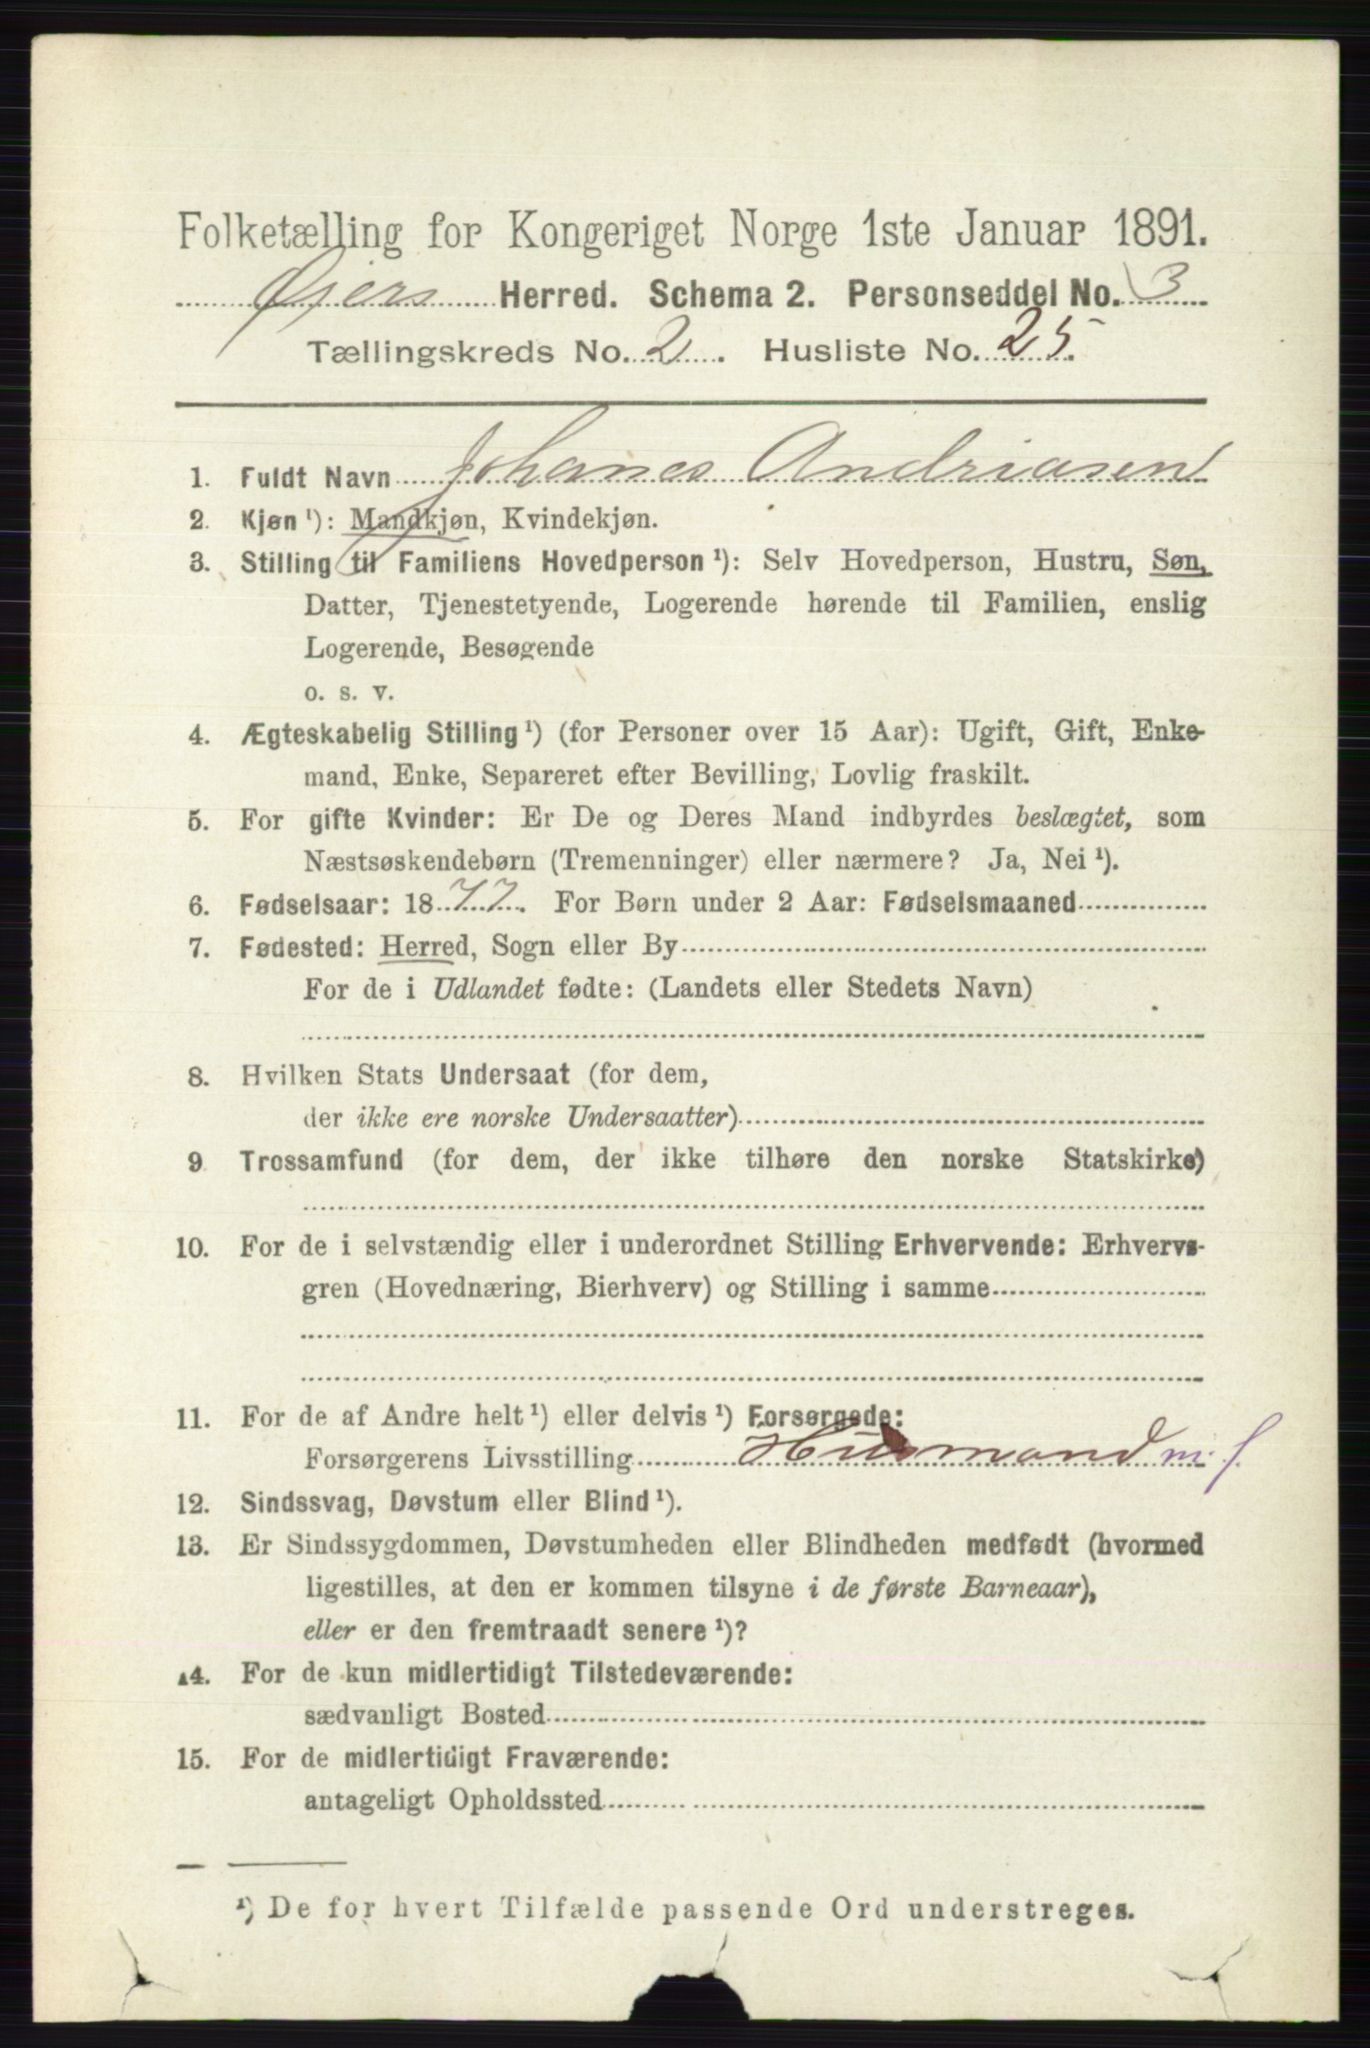 Folketælling for Kongeriget Norge 1ste Januar 1891.
Øiers Herred. Schema 2. Personseddel No. 3
Tællingskreds No. 2. Husliste No. 25.
1. Fuldt Navn Johanes Andriasen
2. Kjøn¹): Mandkjøn, Kvindekjøn.
3. Stilling til Familiens Hovedperson¹): Selv Hovedperson, Hustru, Søn,
Datter, Tjenestetyende, Logerende hørende til Familien, enslig
Logerende, Besøgende
o. s. v.
4. Ægteskabelig Stilling¹) (for Personer over 15 Aar): Ugift, Gift, Enke-
mand, Enke, Separeret efter Bevilling, Lovlig fraskilt.
5. For gifte Kvinder: Er De og Deres Mand indbyrdes beslægtet, som
Næstsøskendebørn (Tremenninger) eller nærmere? Ja, Nei¹).
6. Fødselsaar: 1877. For Børn under 2 Aar: Fødselsmaaned
7. Fødested: Herred, Sogn eller By
For de i Udlandet fødte: (Landets eller Stedets Navn)
8. Hvilken Stats Undersaat (for dem,
der ikke ere norske Undersaatter)
9 Trossamfund (for dem, der ikke tilhøre den norske Statskirke)
10. For de i selvstændig eller i underordnet Stilling Erhvervende: Erhvervs-
gren (Hovednæring, Bierhverv) og Stilling i samme
11. For de af Andre helt¹) eller delvis¹) Forsørgede:
Forsørgerens Livsstilling Husmand m. f.
12. Sindssvag, Døvstum eller Blind¹).
13. Er Sindssygdommen, Døvstumheden eller Blindheden medfødt (hvormed
ligestilles, at den er kommen tilsyne i de første Barneaar),
eller er den fremtraadt senere¹)?
14. For de kun midlertidigt Tilstedeværende:
sædvanligt Bosted
15. For de midlertidigt Fraværende:
antageligt Opholdssted
¹) De for hvert Tilfælde passende Ord understreges.